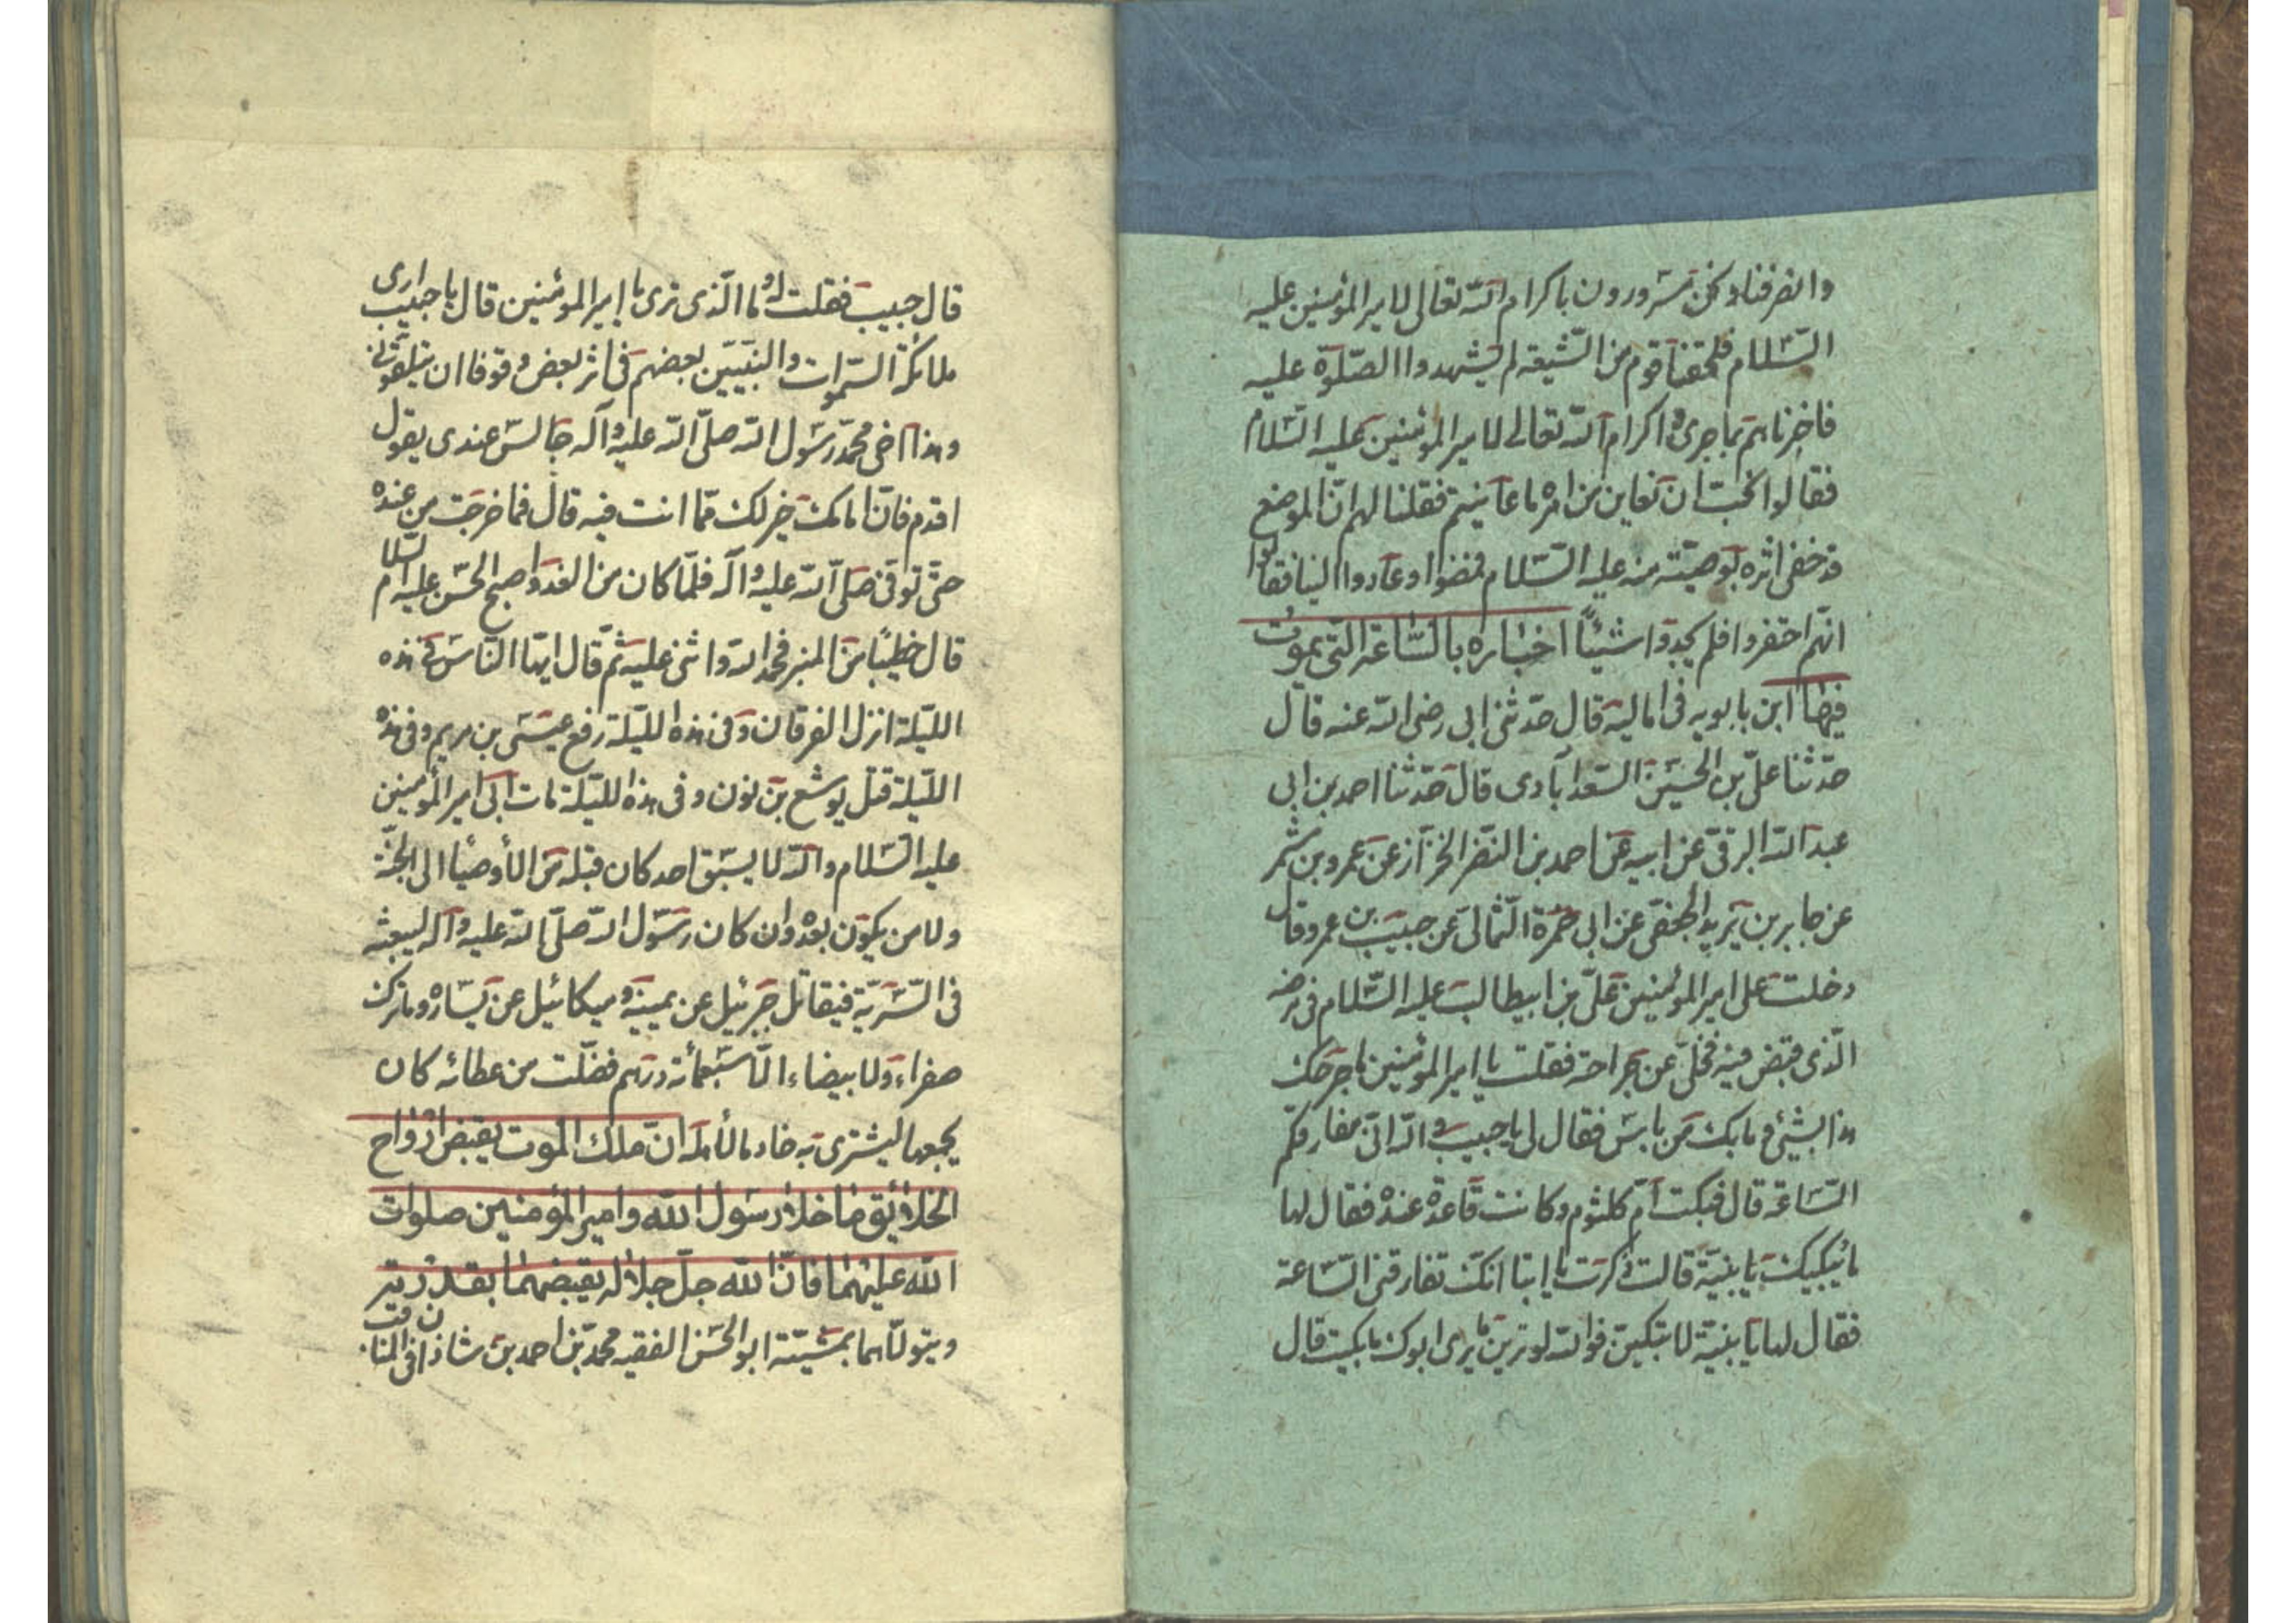 وانصرفنا ونحن مسرورون باكرام الله تعالى لامير المؤمنين عليه
السّلام فلحقنا قوم من الشّيعة لم يشهدوا الصّلوة عليه
فاخبرناهم بما جرى واكرام الله تعالى لامير المؤمنين عليه السّلام
فقالوا نحبّ ان نعاين من امره ما عاينتم فقلنا لهم انّ الموضع
قد خفى اثره بوصيّته منه عليه السّلام فمضوا وعادوا الينا فقالوا
انّهم احتفروا فلم يجدوا شيئًا اخباره بالسّاعة الّتى يموت
فيها ابن بابويه فى اماليه قال حدّثنى ابى رضى الله عنه قال
حدّثنا علىّ بن الحسين السّعدآبادى قال حدّثنا احمد بن ابى
عبد الله البرقى عن ابيه عن احمد بن النّضر الخزّاز عن عمرو بن شمر
عن جابر بن يزيد الجعفى عن ابى حمزة الثّمالى عن حبيب بن عمرو قال
دخلت على امير المؤمنين علىّ بن ابيطالب عليه السّلام فى مرضه
الّذى قبض فيه فحلّ عن جراحته فقلت يا امير المؤمنين ما جرحك
هذا بشئ وما بك من باس فقال لى يا حبيب والله انّى مفارقكم
السّاعة قال فبكت امّ كلثوم وكانت قاعدة عنده فقال لها
ما يبكيك يا بنيّة قالت ذكرت يا ابتا انّك تفارقنى السّاعة
فقال لها يا بنيّة لا تبكين فوالله لو ترين ما يرى ابوك ما بكيت قال
قال حبيب فقلت له وما الّذى ترى يا امير المؤمنين قال يا حبيب ارى
ملائكة السّموات والنّبيّين بعضهم فى اثر بعض وقوفا ان يتلقّونى
وهذا اخى محمّد رسول الله صلّى الله عليه وآله جالس عندى يقول
اقدم فانّ امامك خير لك ممّا انت فيه قال فما خرجت من عنده
حتّى توفّى صلّى الله عليه وآله فلمّا كان من الغد واصبح الحسن عليه السّلام
قال خطيبًا من المنبر فحمد الله واثنى عليه ثمّ قال ايّها النّاس فى هذه
اللّيلة انزل الفرقان وفى هذه اللّيلة رفع عيسى بن مريم وفى هذه
اللّيلة قتل يوشع بن نون وفى هذه اللّيلة مات ابى امير المؤمنين
عليه السّلام والله لا يسبق احد كان قبله من الأوصيا الى الجنّة
ولا من يكون بعده وان كان رسول الله صلّى الله عليه وآله ليبعثه
فى السّريّة فيقاتل جبرئيل عن يمينه وميكائيل عن يساره وما ترك
صفراء ولا بيضاء الّا سبعمائة درهم فضلت من عطائه كان
يجمعها ليشترى به خادما لأهله انّ ملك الموت يقبض ارواح
الخلائق ما خلا رسول الله وامير المؤمنين صلوات
الله عليهما فانّ الله جلّ جلاله يقبضهما بقدرته
ويتولّاهما بمشيّته ابو الحسن الفقيه محمّد بن احمد بن شاذان فى المناقب